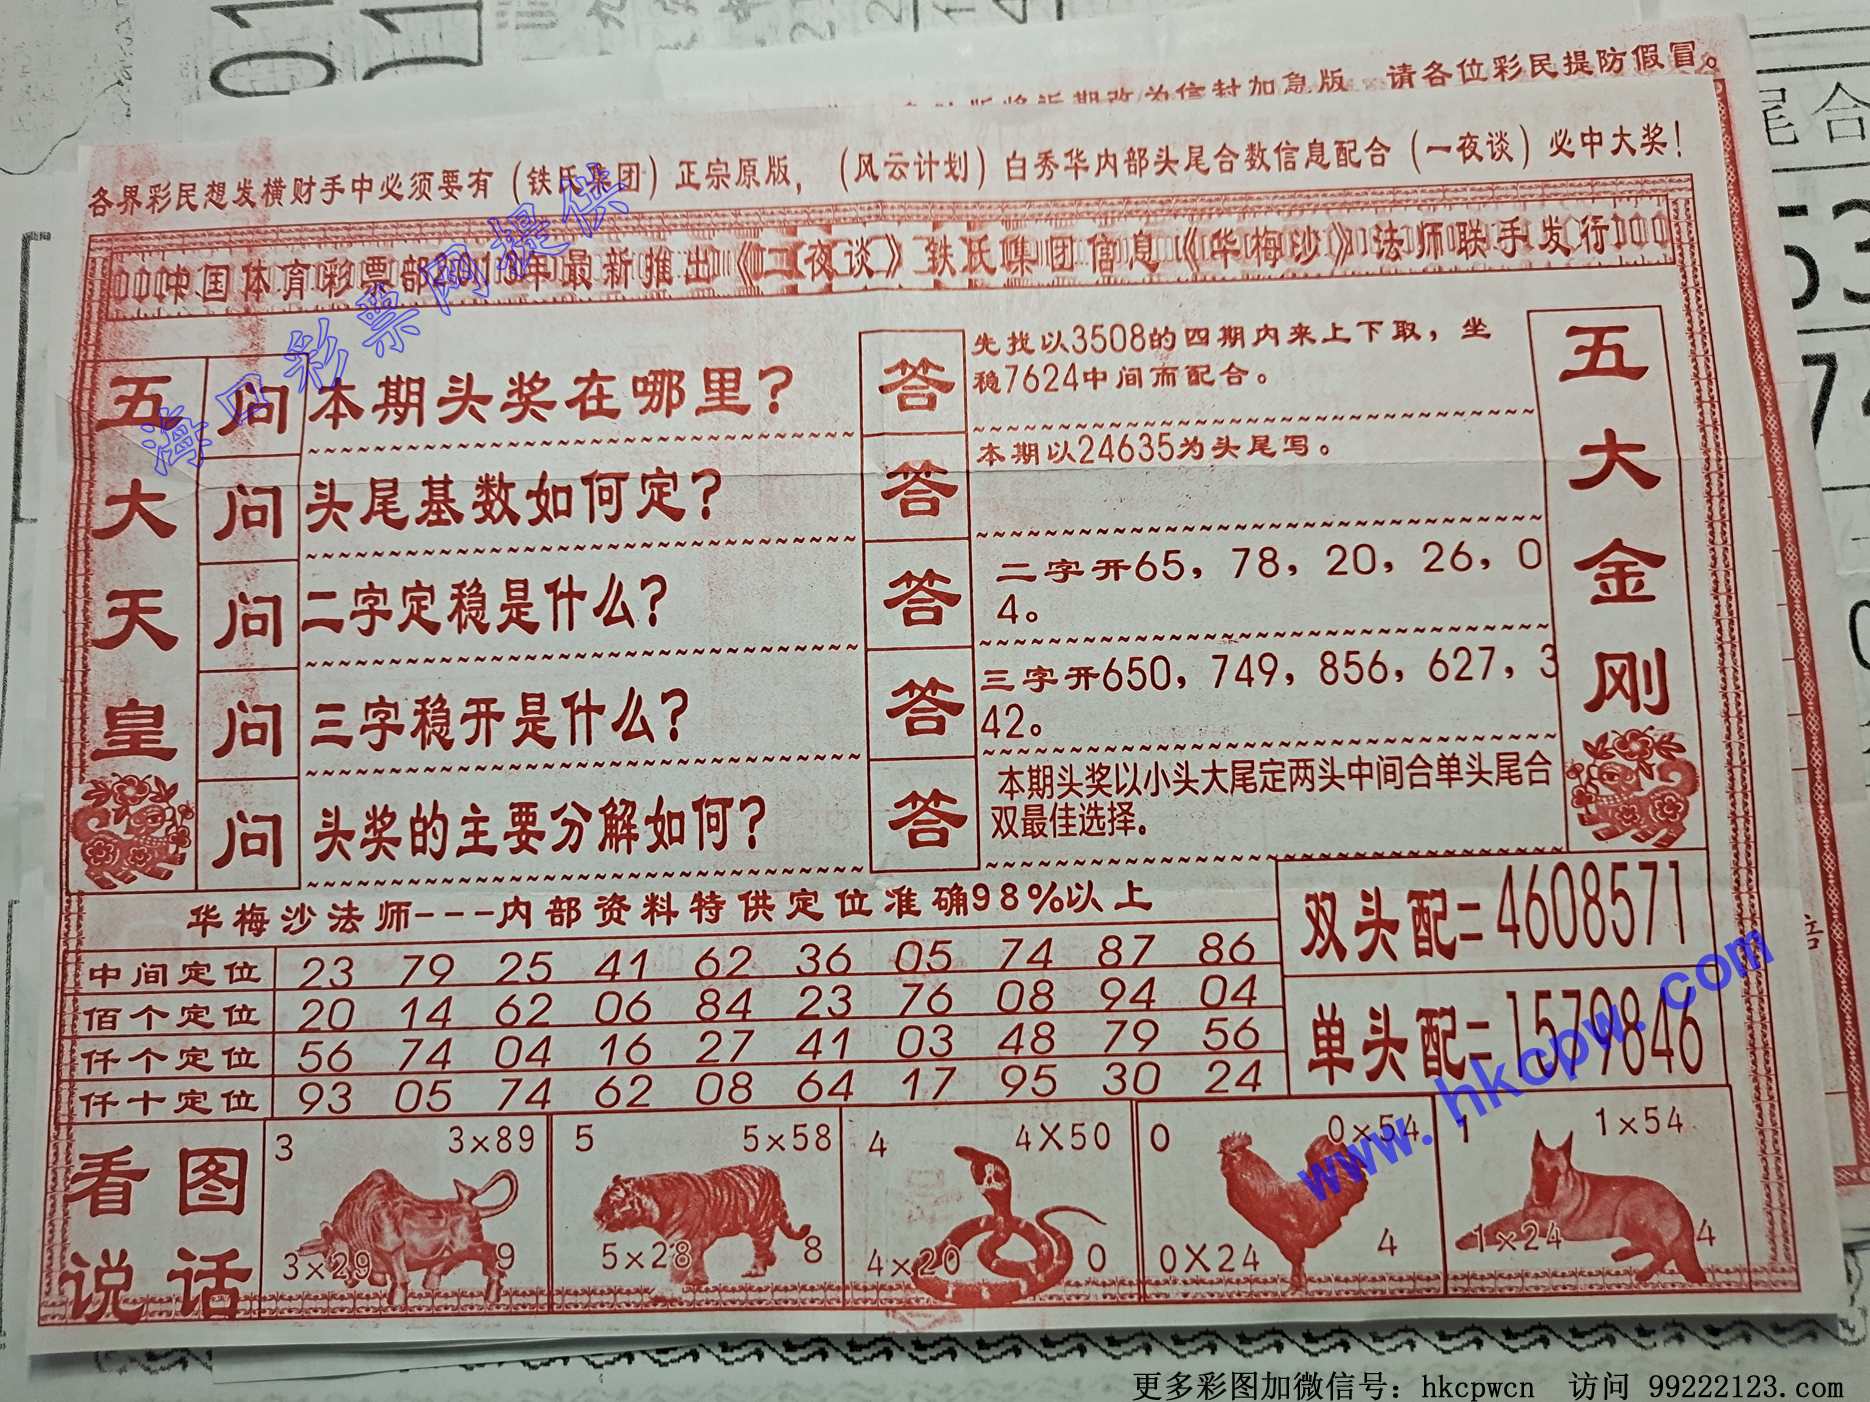 请各位彩民提防假冒。
各界彩民想发横财手中必须要有（铁氏集团）正宗原版，（风云计划）白秀华内部头尾合数信息配合（一夜谈）必中大奖！
中国体育彩票部2013年最新推出《一夜谈》铁氏集团信息《华梅沙》法师联手发行
五大天皇
问 本期头奖在哪里？
答 先找以3508的四期内来上下取，坐
稳7624中间而配合。
问 头尾基数如何定？
答 本期以24635为头尾写。
问 二字定稳是什么？
答 二字开65，78，20，26，0
4。
问 三字稳开是什么？
答 三字开650，749，856，627，3
42。
问 头奖的主要分解如何？
答 本期头奖以小头大尾定两头中间合单头尾合
双最佳选择。
五大金刚
华梅沙法师---内部资料特供定位准确98%以上
中间定位 23 79 25 41 62 36 05 74 87 86
佰个定位 20 14 62 06 84 23 76 08 94 04
仟个定位 56 74 04 16 27 41 03 48 79 56
仟十定位 93 05 74 62 08 64 17 95 30 24
双头配二4608571
单头配二1579846
看图
说话
3 3×89
3×29 9
5 5×58
5×28 8
4 4X50
4×20 0
0 0×54
0X24 4
1 1×54
1×24 4
海口彩票网提供
www.hkcpw.com
更多彩图加微信号：hkcpwcn 访问 99222123.com